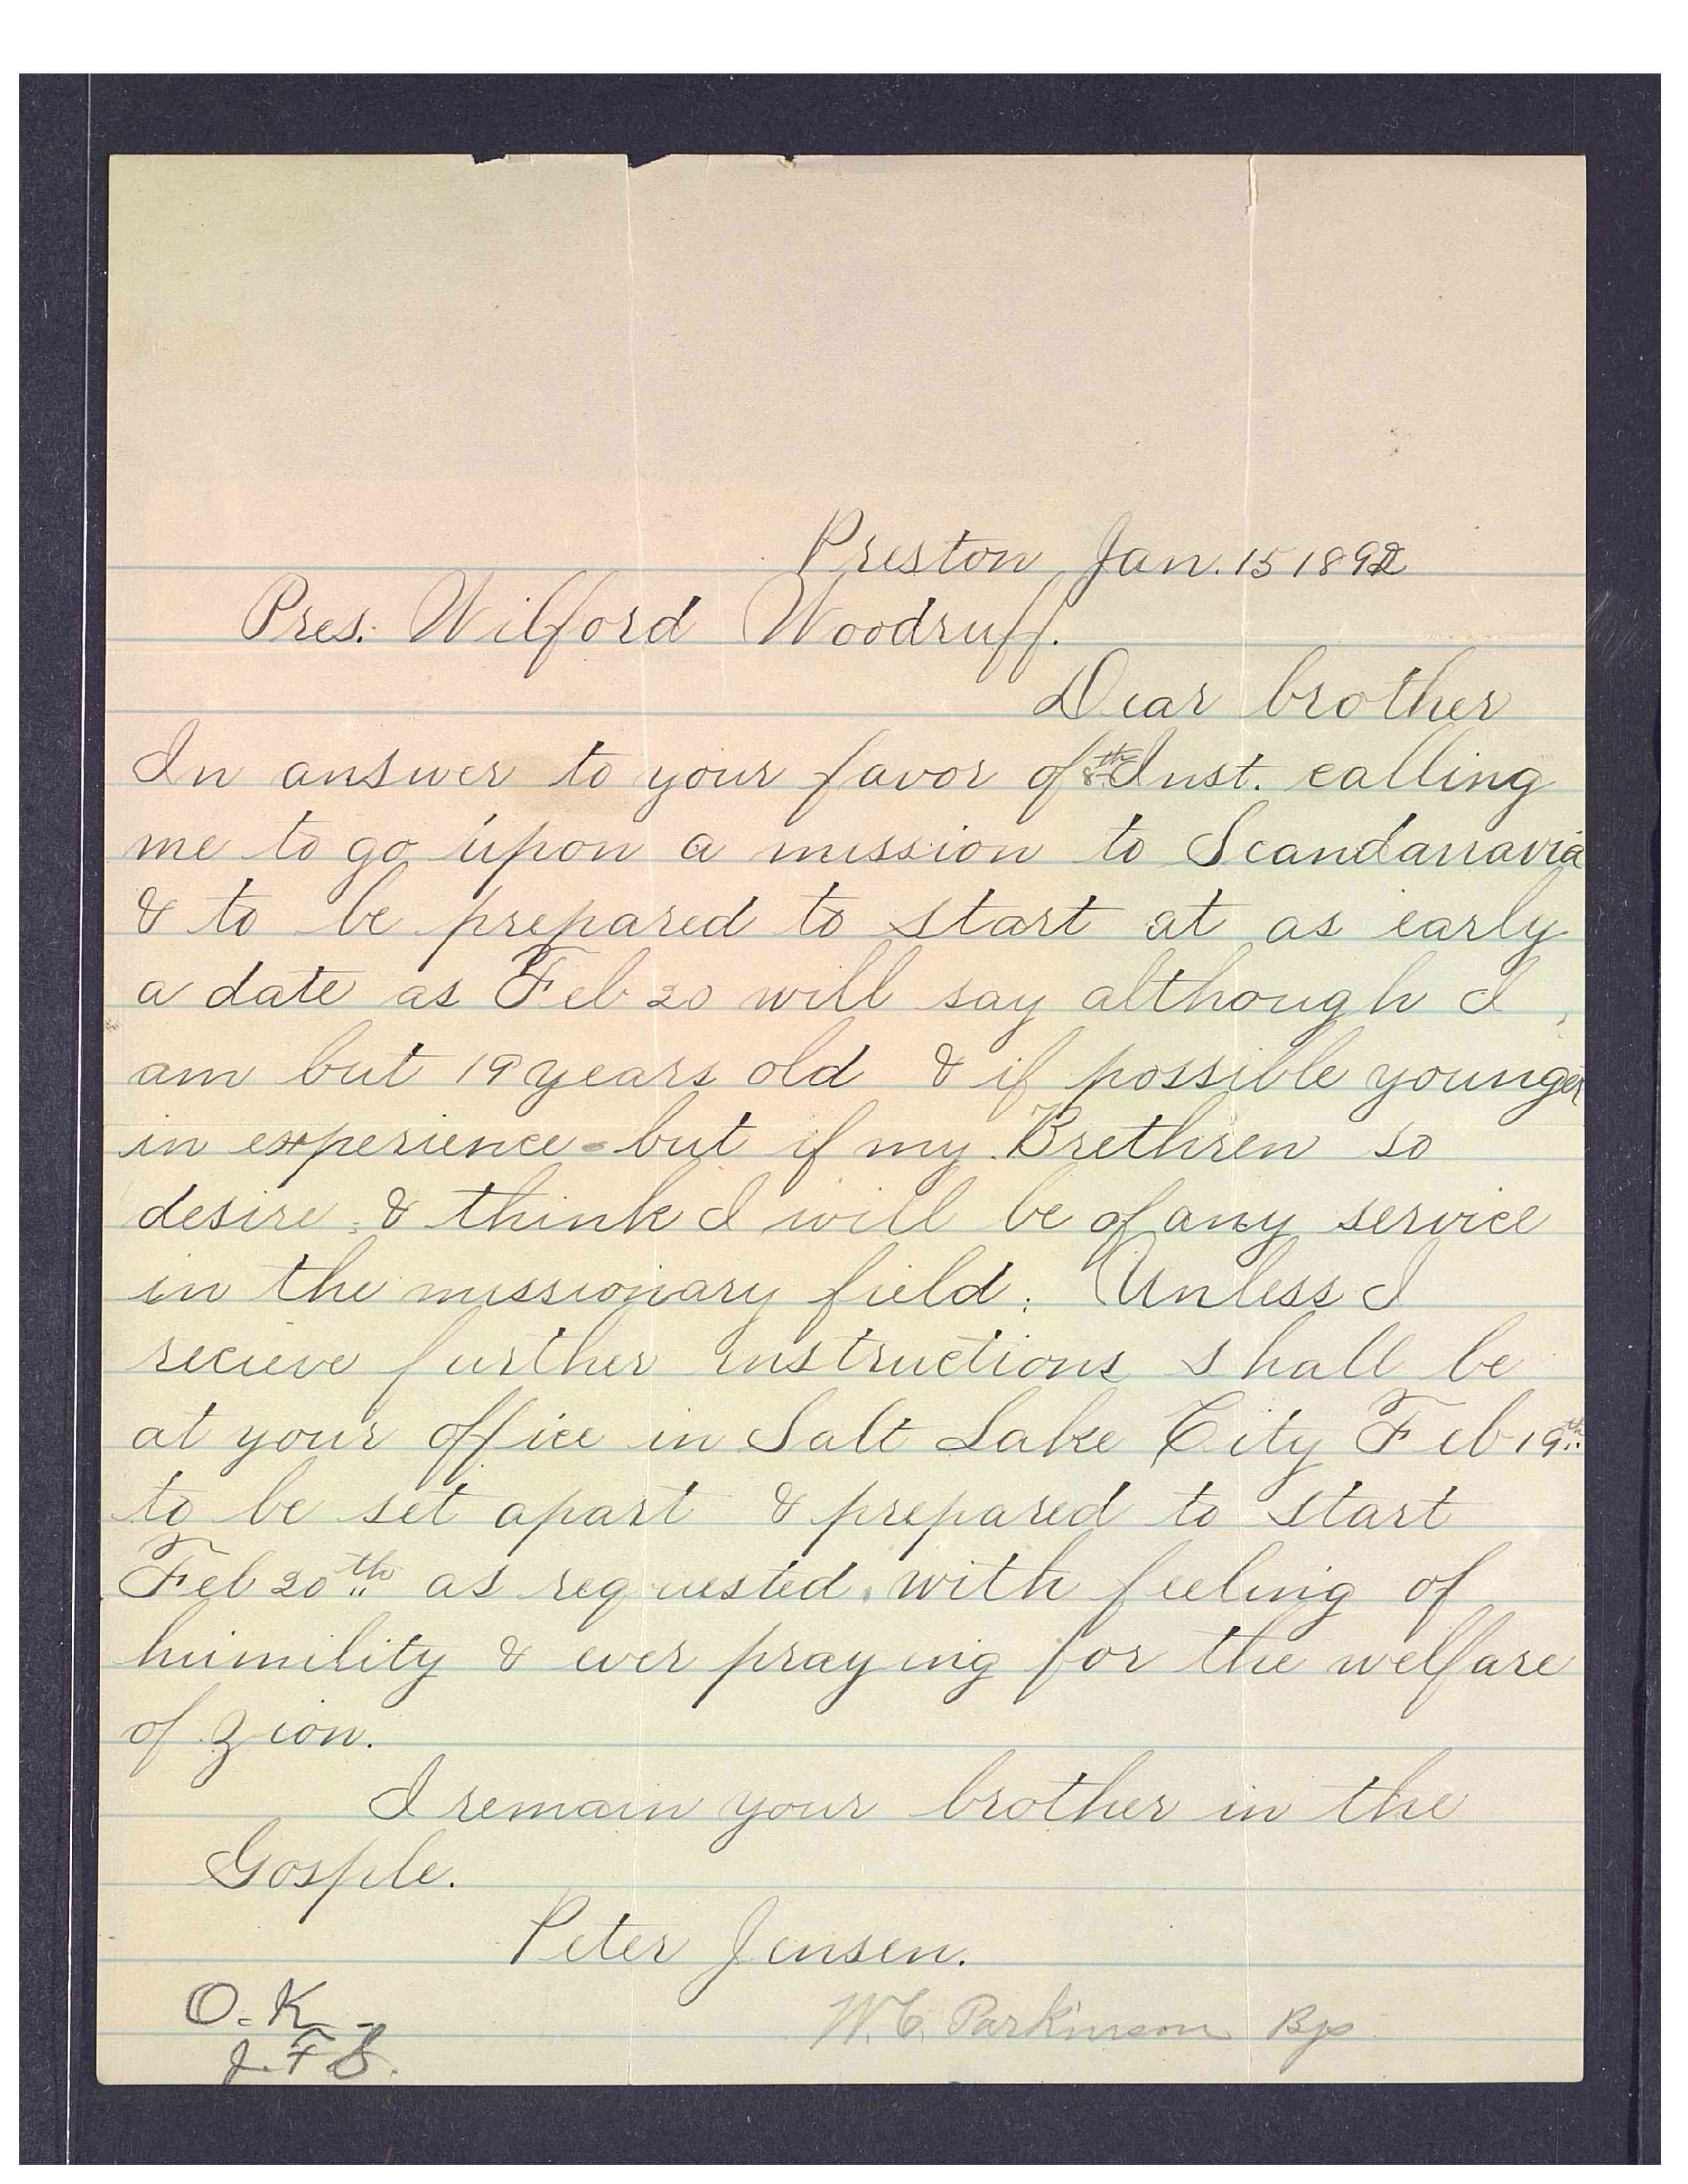 Preston Jan. 15 1892
Pres. Wilford Woodruff.
Dear brother
In answer to your favor of 8th Inst. calling
me to go upon a mission to Scandanavia
& to be prepared to start at as early
a date as Feb 20 will say although I
am but 19 years old & if possible younger
in experience - but if my Brethren so
desire, & think I will be of any service
in the missionary field. Unless I
recieve further instructions shall be
at your office in Salt Lake City Feb 19th
to be set apart & prepared to start
Feb 20th as requested. with feeling of
humility & ever praying for the welfare
of zion.
I remain your brother in the
Gosple.
Peter Jensen.
O. K.
W. C. Parkinson Bp
J. F. S.